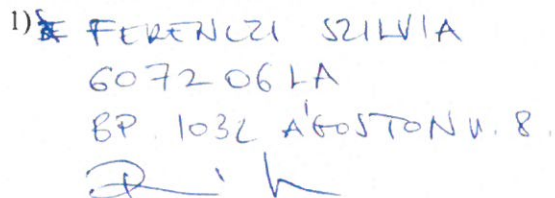 1) FERENCZI SZILVIA
607206LA
BP. 1032 ÁGOSTON U. 8.